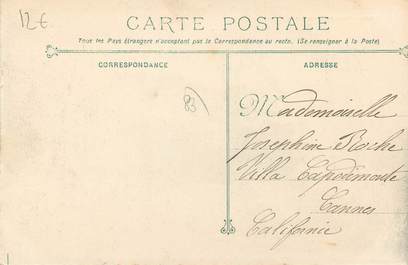 12€
CARTE POSTALE
Tous les Pays étrangers n'acceptent pas la Correspondance au recto. (Se renseigner à la Poste)
CORRESPONDANCE
ADRESSE
83
Mademoiselle
Josephine Roche
Villa Capodimonte
Cannes
Californie